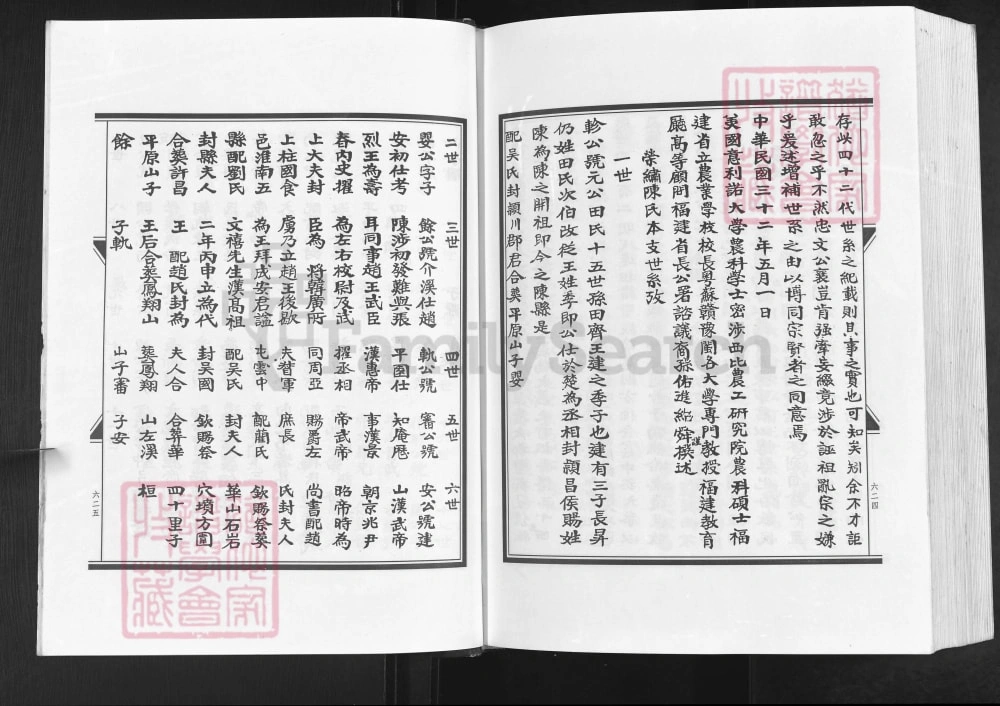 存此四十二代世系之紀載則其事之實也可知矣矧余不才詎
敢忽之乎不然忠文公襄豈肯强牽妄綴竟涉於誣祖亂宗之嫌
乎爰述增補世系之由以博同宗賢者之同意焉
中華民國三十二年五月一日
美國意利諾大學農科學士密涉西比農工研究院農科碩士福
建省立農業學校校長粵蘇贛豫閩各大學專門教授福建教育
廳高等顧問福建省長公署諮議裔孫佑進紹舜謹撰述
榮繡陳氏本支世系攷
一世
軫公號元公田氏十五世孫田齊王建之季子也建有三子長昇
仍姓田氏次伯改從王姓季即公仕於楚為丞相封潁昌侯賜姓
陳為陳之開祖即今之陳縣是
配吳氏封潁川郡君合葬平原山子嬰
六二四
二世
嬰公字子
安初仕考
烈王為壽
春內史擢
上大夫封
上柱國食
邑淮南五
縣配劉氏
封縣夫人
合葬許昌
平原山子
餘
三世
餘公號介溪仕趙
陳涉初發難與張
耳同事趙王武臣
為左右校尉及武
臣為將韓廣所
虜乃立趙王後歇
為王拜成安君諡
文禧先生漢高祖
二年丙申立為代
王配趙氏封為
王后合葬鳳翔山
子軌
四世
軌公號
平園仕
漢惠帝
擢丞相
同周亞
夫督軍
屯雲中
配吳氏
封吳國
夫人合
葬鳳翔
山子審
五世
審公號
知庵歷
事漢景
帝武帝
賜爵左
庶長
配蘭氏
封夫人
欽賜祭
合葬華
山左溪
子安
六世
安公號建
山漢武帝
朝京兆尹
昭帝時為
尚書配趙
氏封夫人
欽賜祭葬
華山石岩
穴墳方圓
四十里子
桓
六二五
FamilySearch